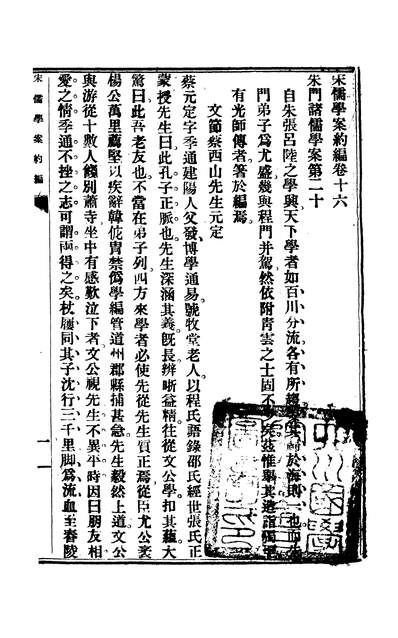 宋儒學案約編卷十六
朱門諸儒學案第二十
自朱張呂陸之學興天下學者如百川分流各有所
門弟子爲尤盛幾與程門并駕然依附青雲之士固不
有光師傳者箸於編焉
文節蔡西山先生元定
蔡元定字季通建陽人父發博學通易號牧堂老人以程氏語錄邵氏經世張氏正
蒙授先生曰此孔子正脈也先生深涵其義旣長辨晰益精往從文公學扣其蘊大
驚曰此吾老友也不當在弟子列四方來學者必使先從先生質正焉從臣尤公袤
楊公萬里薦堅以疾辭韓侂胄禁僞學編管道州郡縣捕甚急先生毅然上道文公
與游從十數人餞別蕭寺坐中有感歎泣下者文公視先生不異平時因曰朋友相
愛之情季通不挫之志可謂兩得之矣杖屨同其子沈行三千里脚爲流血至舂陵
宋儒學案約編
一